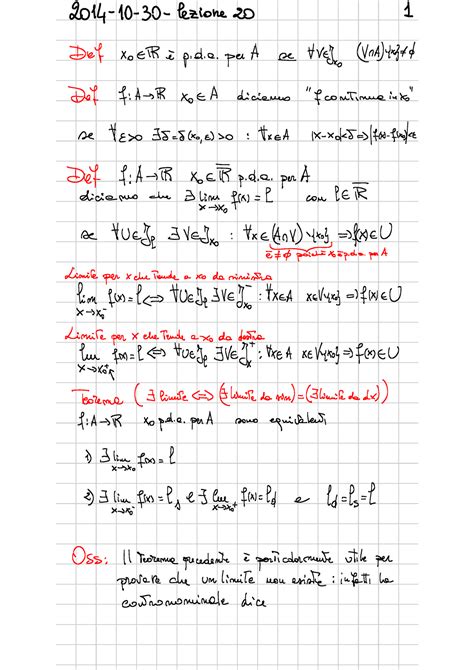 2014-10-30-lezione 20 1
Def x₀∈ℝ̄ è p.d.a. per A se ∀V∈ℐ_x₀ (V∩A)\{x₀}≠∅
Def f:A→ℝ x₀∈A diciamo "f continua in x₀"
se ∀ε>0 ∃δ=δ(x₀,ε)>0 : ∀x∈A |x-x₀|<δ⇒|f(x)-f(x₀)|<ε
Def f:A→ℝ x₀∈ℝ̄ p.d.a. per A
diciamo che ∃ lim_{x→x₀} f(x)=l con l∈ℝ̄
se ∀U∈ℐ_l ∃V∈ℐ_x₀ : ∀x∈(A∩V)\{x₀} ⇒f(x)∈U
è≠∅ poiché x₀ è p.d.a. per A
Limite per x che tende a x₀ da sinistra
lim_{x→x₀⁻} f(x)=l⇔ ∀U∈ℐ_l ∃V∈ℐ⁻_x₀ : ∀x∈A x∈V\{x₀}⇒f(x)∈U
Limite per x che tende a x₀ da destra
lim_{x→x₀⁺} f(x)=l⇔ ∀U∈ℐ_l ∃V∈ℐ⁺_x₀ : ∀x∈A x∈V\{x₀}⇒f(x)∈U
Teorema (∃ limite ⇔ (∃ limite da sin)=(∃ limite da dx))
f:A→ℝ x₀ p.d.a. per A sono equivalenti
1) ∃ lim_{x→x₀} f(x)=l
2) ∃ lim_{x→x₀⁻} f(x)=l_s e ∃ lim_{x→x₀⁺} f(x)=l_d e l_d=l_s=l
Oss: Il Teorema precedente è particolarmente utile per
provare che un limite non esiste : infatti la
contronominale dice